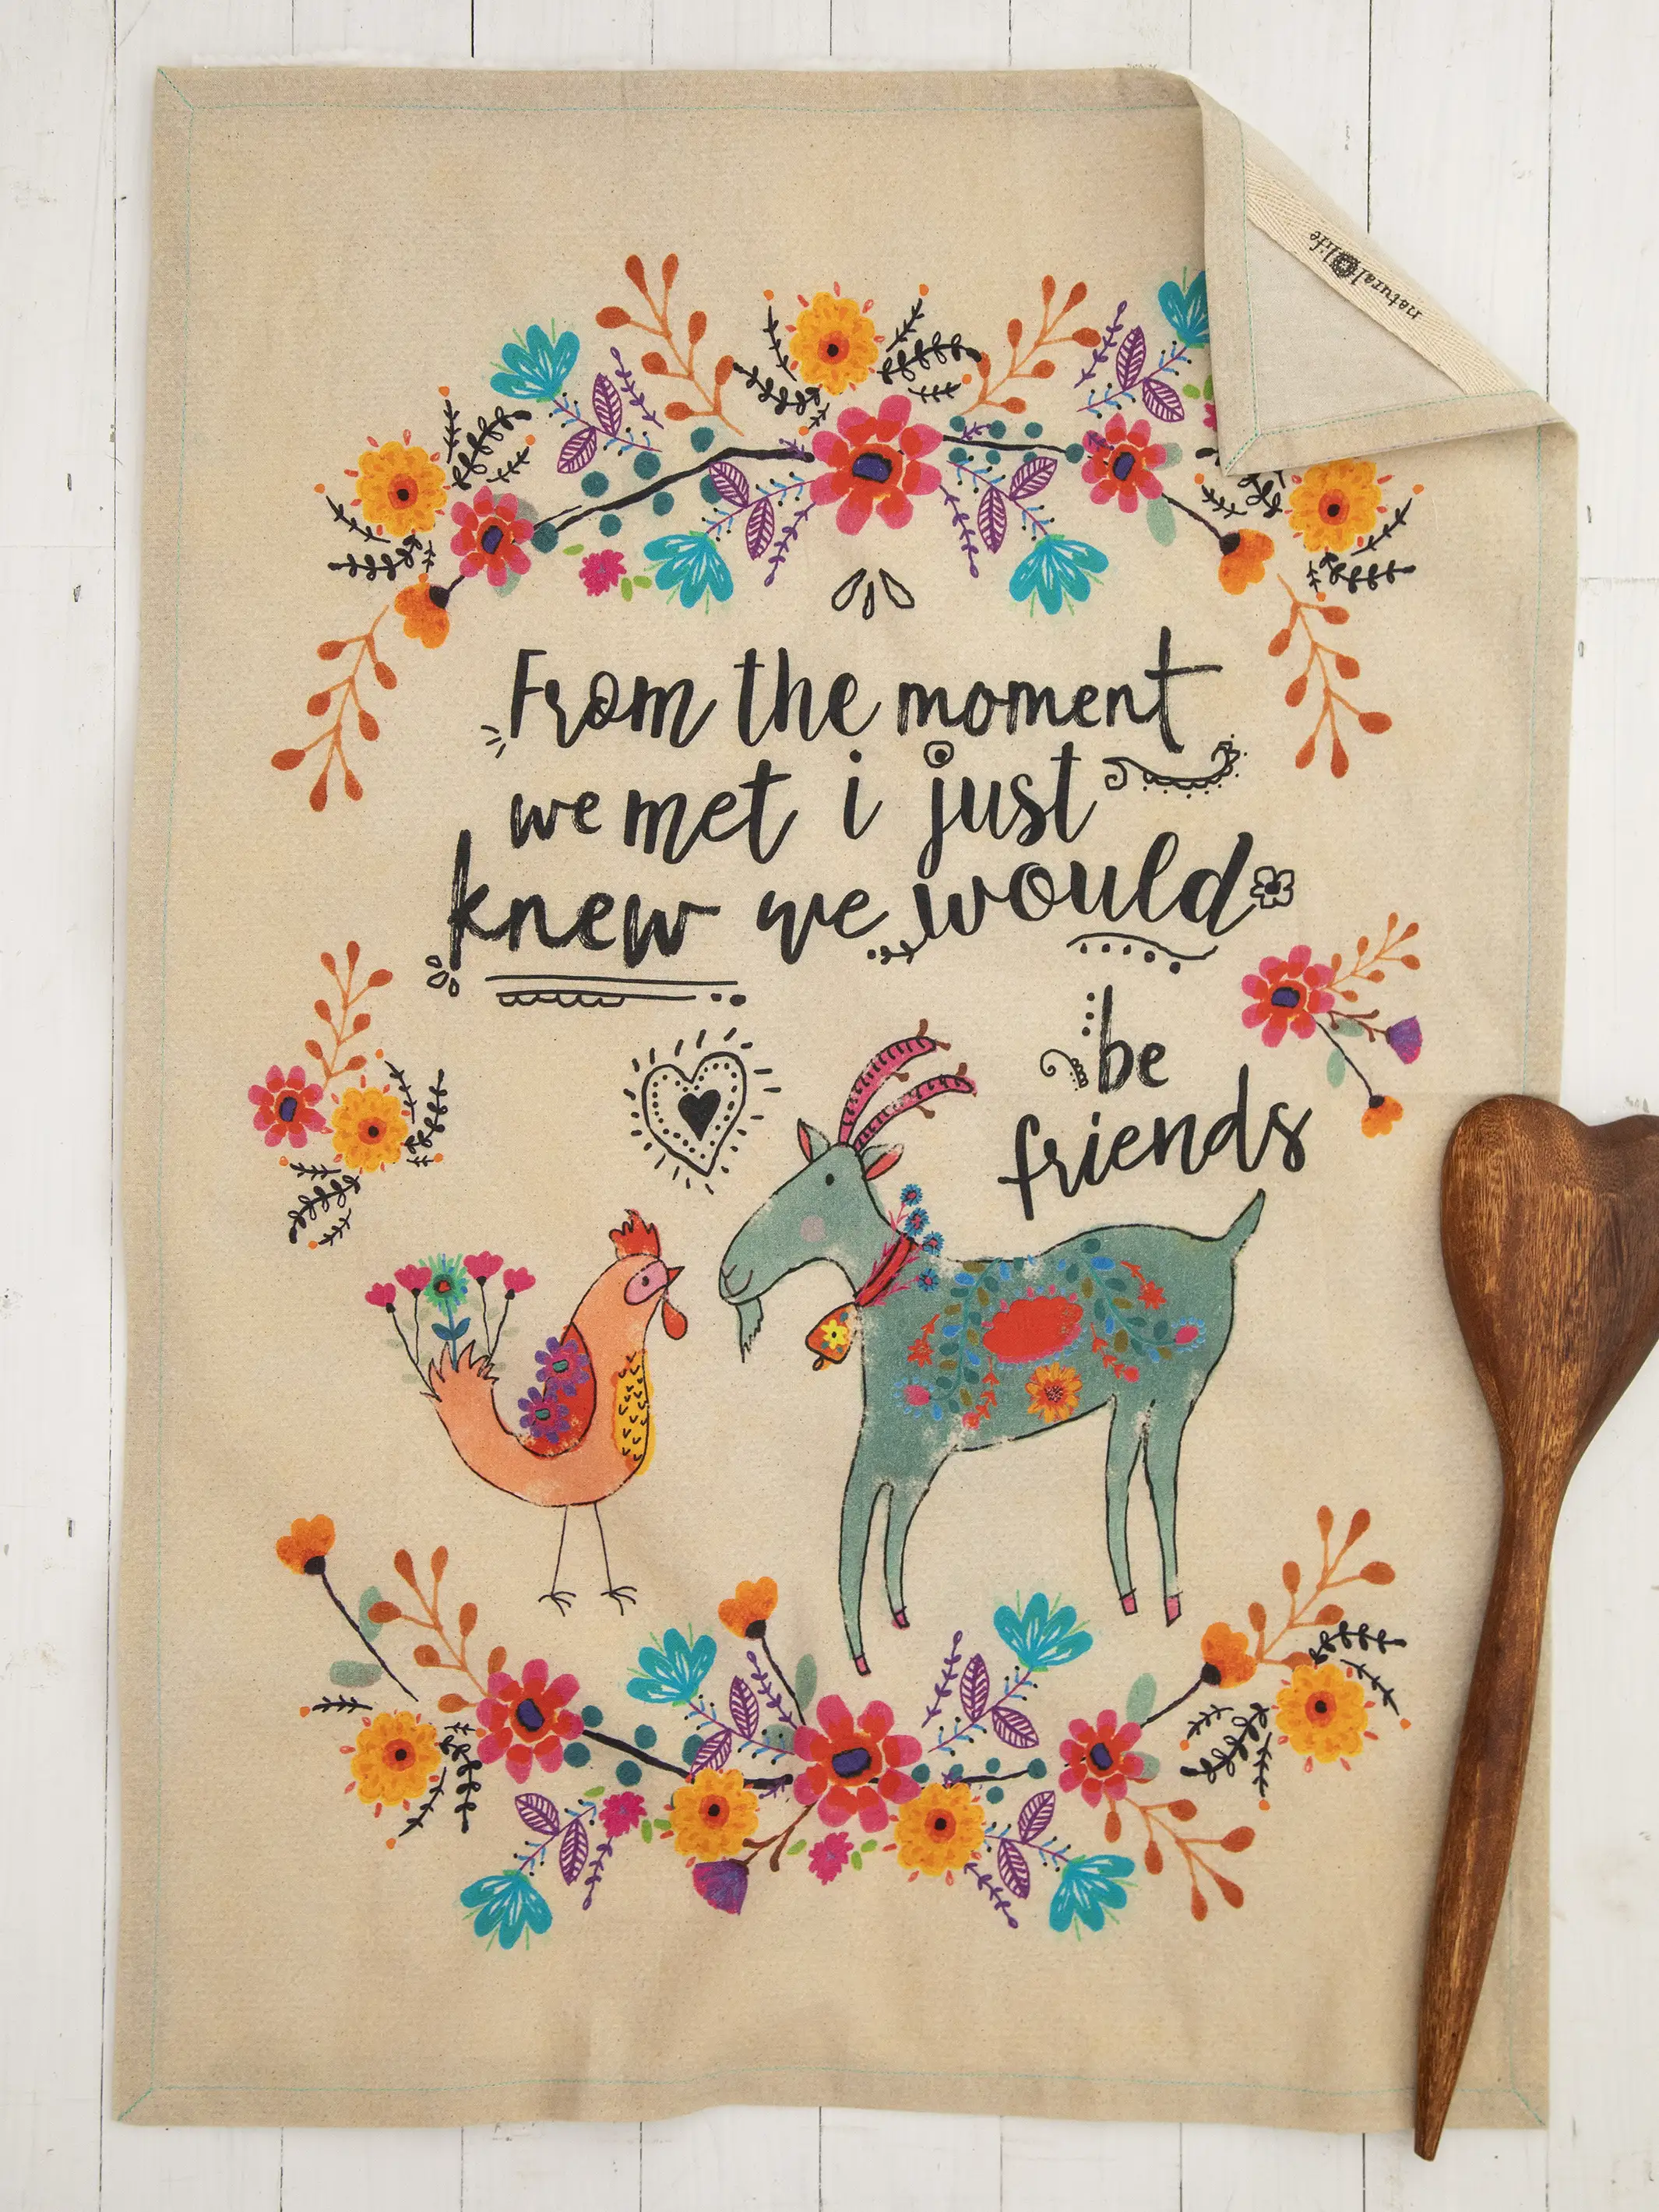 natural life
From the moment
we met i just
knew we would
be
friends